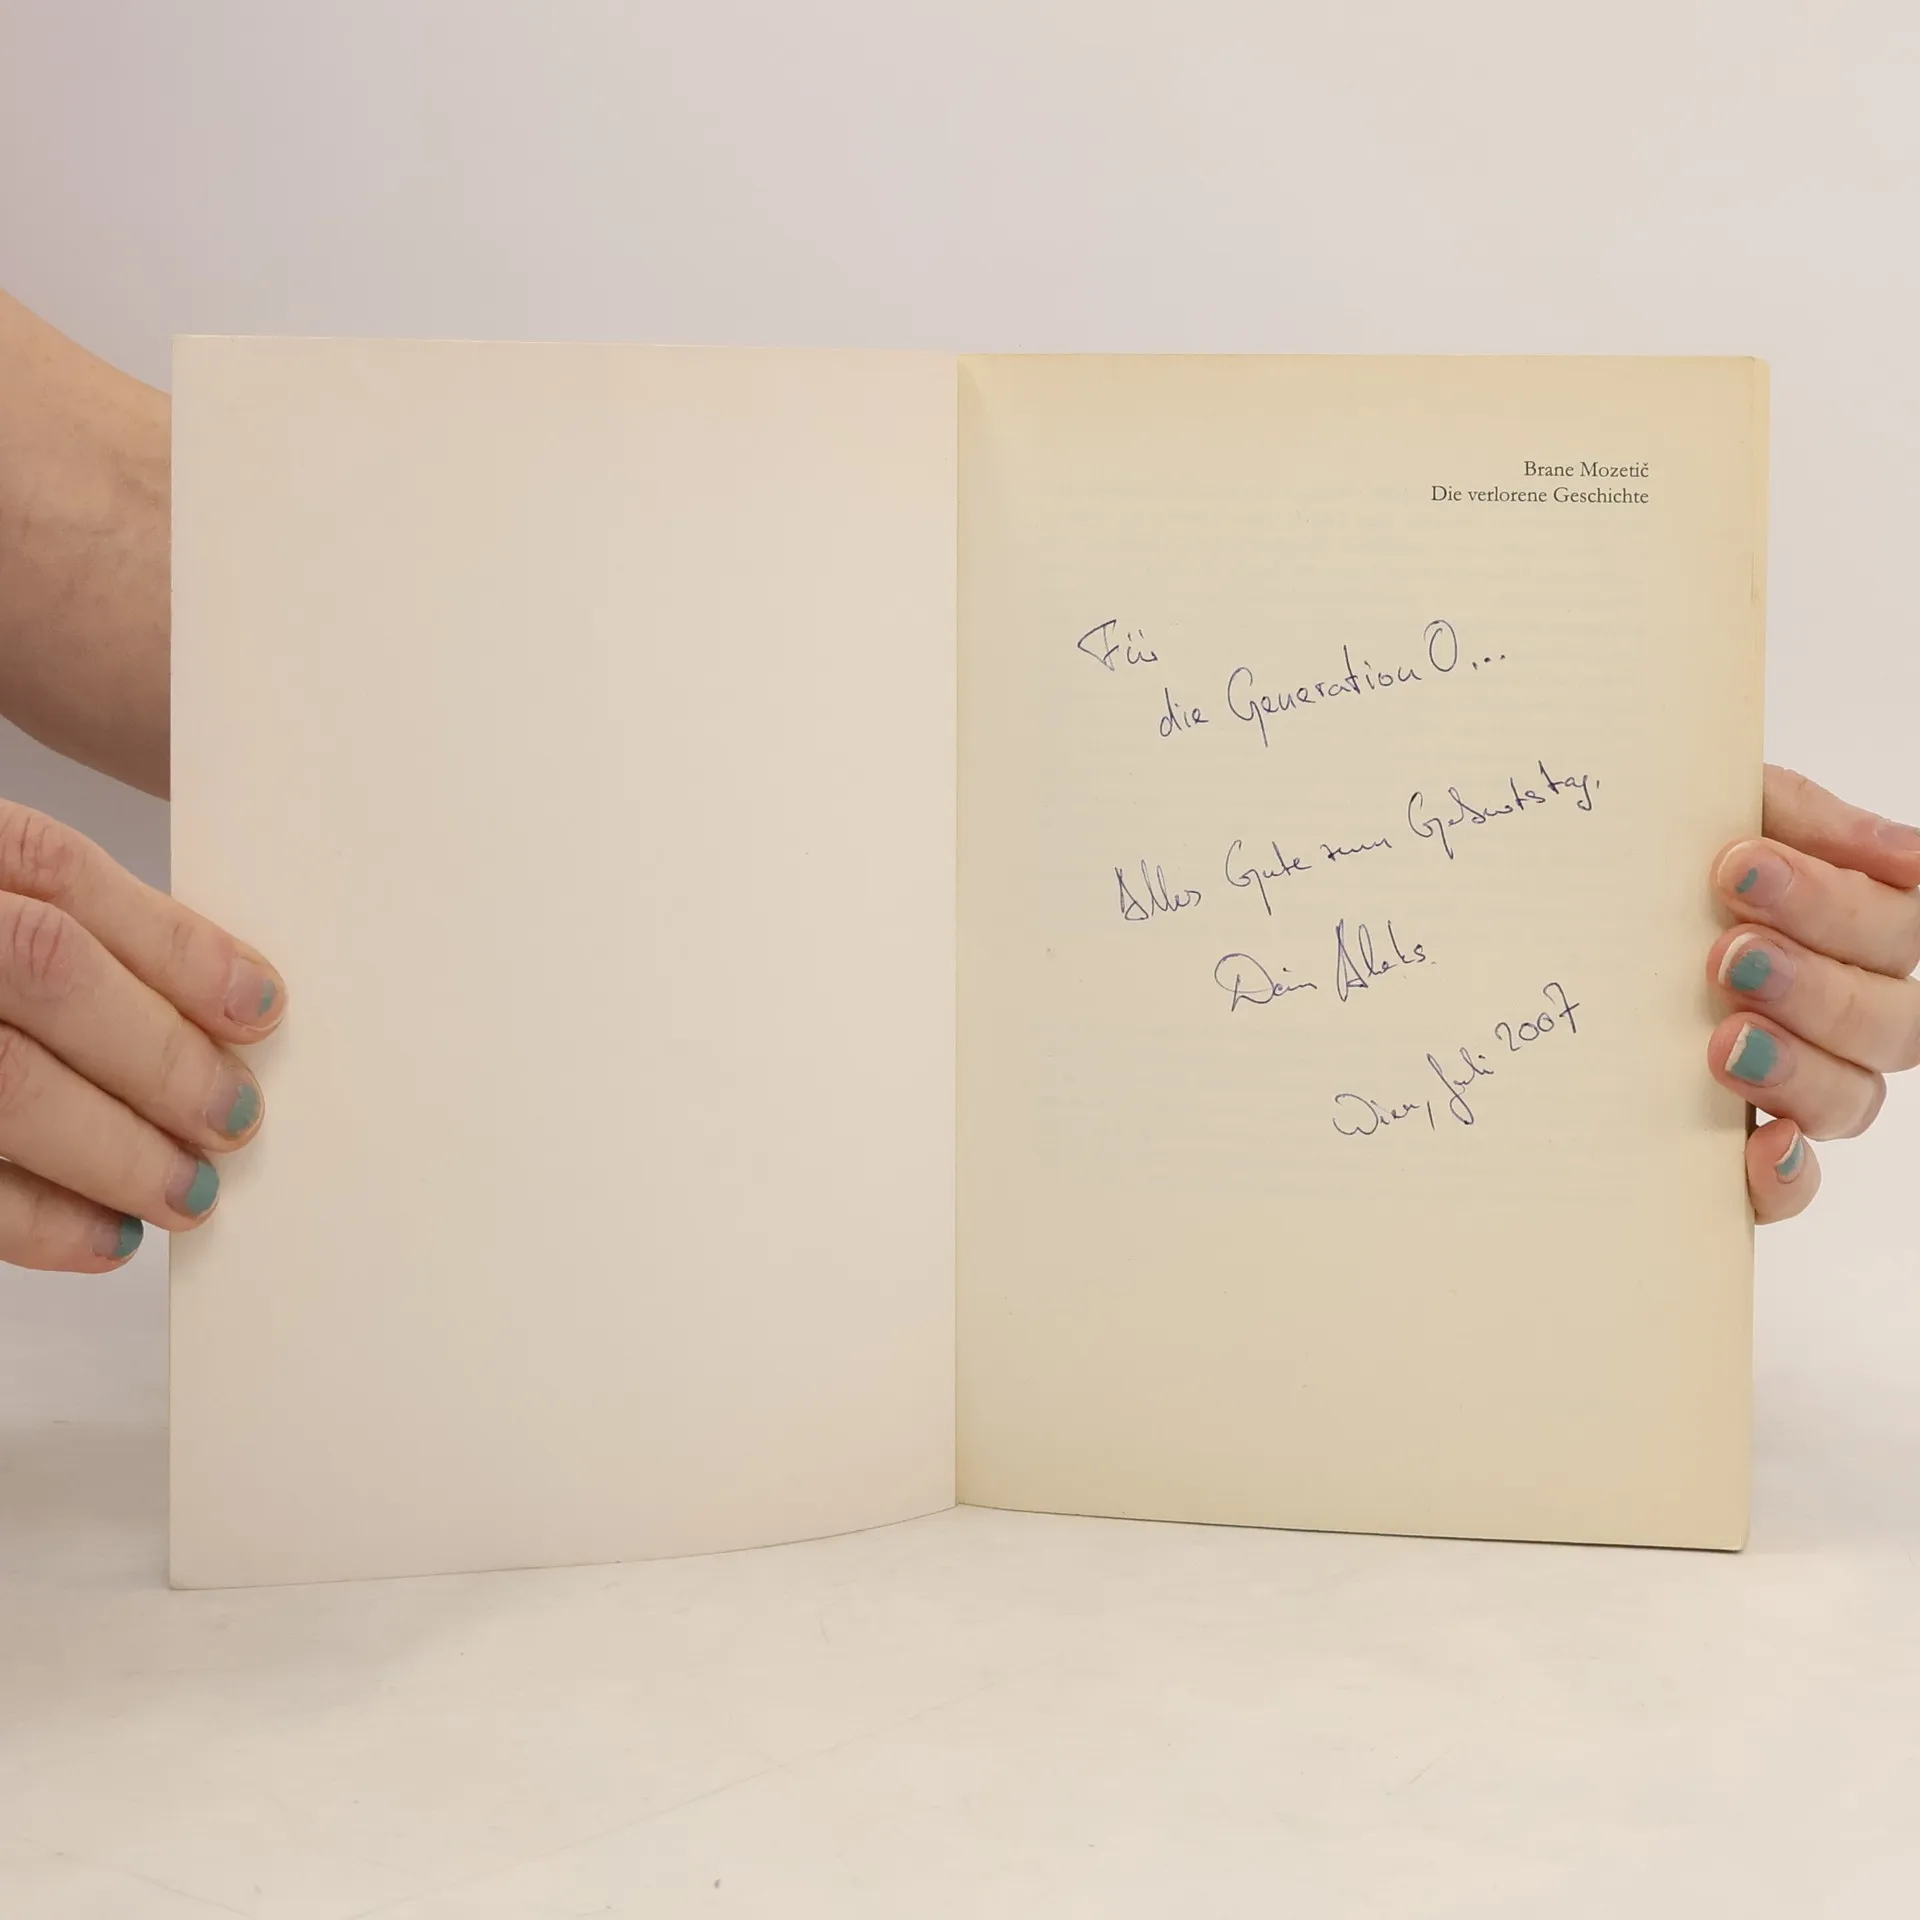 Brane Mozetič
Die verlorene Geschichte
Für
die Generation O...
Alles Gute zum Geburtstag,
Dein Aleks.
Wien, Juli 2007